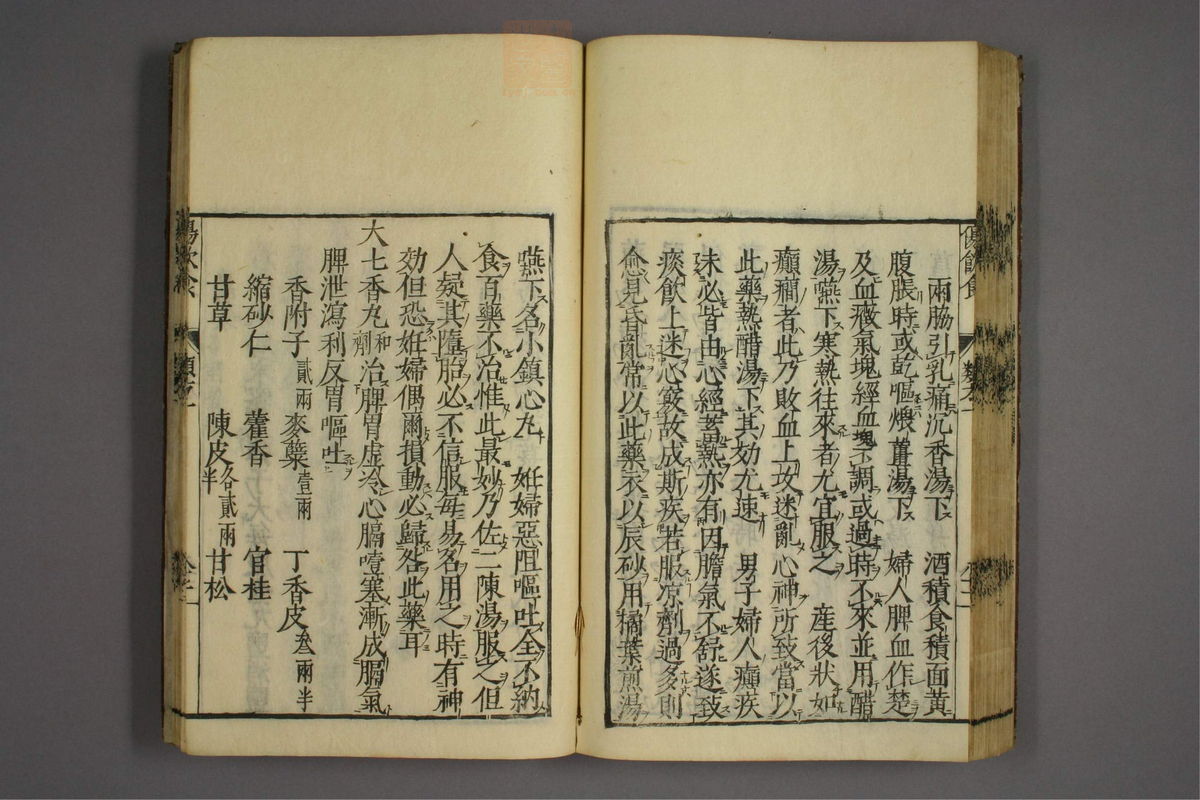 兩脇引乳痛沉香湯下　酒積食積面黃
腹脹時或乾嘔煨薑湯下　婦人脾血作楚
及血癥氣塊經血塊不調或過時不來並用醋
湯嚥下寒熱往來者尤宜服之　產後狀如
癲癎者此乃敗血上攻迷亂心神所致當以
此藥熱醋湯下其効尤速　男子婦人癲疾
未必皆由心經蓄熱亦有因膽氣不舒遂致
痰飲上迷心竅故成斯疾若服凉劑過多則
愈見昏亂常以此藥衣以辰砂用橘葉煎湯
嚥下名小鎮心丸　妊婦惡阻嘔吐全不納
食百藥不治惟此最妙乃佐二陳湯服之但
人疑其墮胎必不信服每易名用之時有神
効但恐妊婦偶爾損動必歸咎此藥耳
大七香丸和劑治脾胃虛冷心膈噎塞漸成膈氣
脾泄瀉利反胃嘔吐
香附子貳兩　麥櫱壹兩　丁香皮叁兩半
縮砂仁　藿香　官桂
甘草　陳皮各貳兩半　甘松